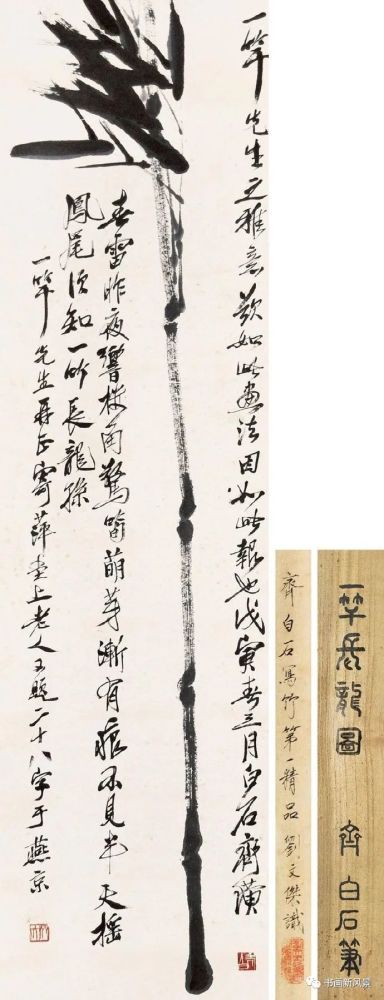 一竿先生之雅意欲如此畫法因以此報也戊寅春三月白石齊璜
春雷昨夜響角驚筍萌芽漸有痕不見半天搖
鳳尾須知一節長龍孫
一竿先生再正寄萍堂上老人又題二十八字于燕京
齊白石寫竹第一精品 劉文傑識
一竿長龍圖 齊白石筆
书画新风景